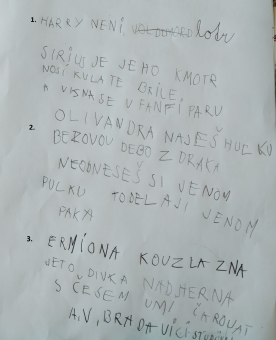 1. HARRY NENÍ VOLDEMORD lotr
SIRIUS JE JEHO KMOTR
NOSÍ KULATE BRÍLE,
A VISNA SE V FANFÍ PARU
2. OLIVANDRA NAJEŠ HŮLKU
BEZOVOU DEBO Z DRAKA
NEODNESEŠ SI JENOM
PULKU TODELAJI JENOM
PAKA
3. ERMIONA KOUZLA ZNA
JETO DIVKA NADHERNA
S ČESEM UMÍ ČAROVAT
A, V, BRADAVICI